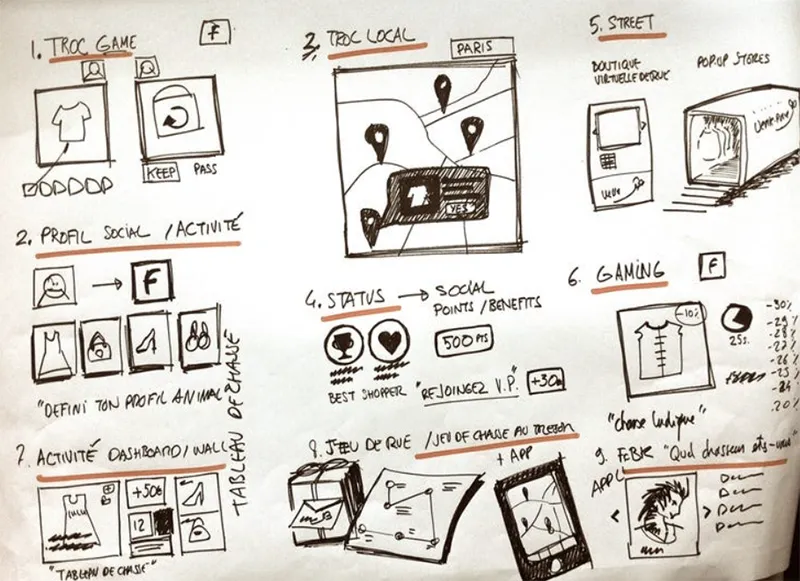 1. TROC GAME
F
KEEP PASS
2. PROFIL SOCIAL / ACTIVITÉ
F
"DEFINI TON PROFIL ANIMAL
TABLEAU DE CHASSE
3. TROC LOCAL
PARIS
YES
4. STATUS → SOCIAL
POINTS / BENEFITS
500 PTS
BEST SHOPPER "REJOINGEZ V.P" +30
5. STREET
BOUTIQUE
VIRTUELLE DE RUE
POP.UP STORES
6. GAMING
F
-10%
25s.
-30%
-29%
-28%
-27%
-26%
-25
-24
20%
"chasse ludique"
7. ACTIVITÉ DASHBOARD/WALL
+50
12
"TABLEAU DE CHASSE"
8. JEU DE RUE / JEU DE CHASSE AU TRESOR
+ APP
9. FcBK "Quel chasseur êts-vous"
APPLI